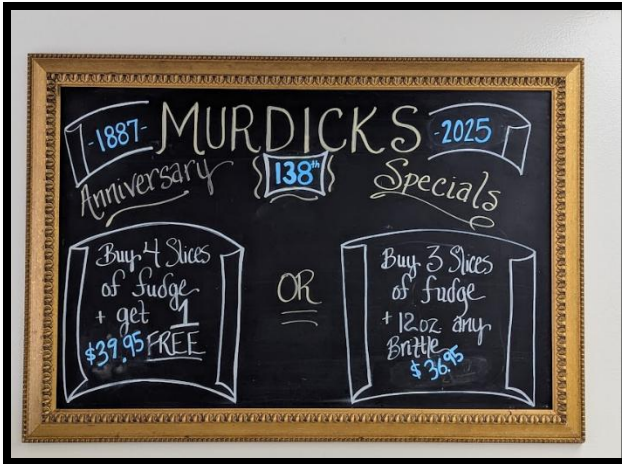 -1887- MURDICKS -2025
Anniversary 138th Specials
Buy 4 Slices
of fudge
+ get 1
$39.95 FREE
OR
Buy 3 Slices
of fudge
+ 12oz any
Brittle
$36.95